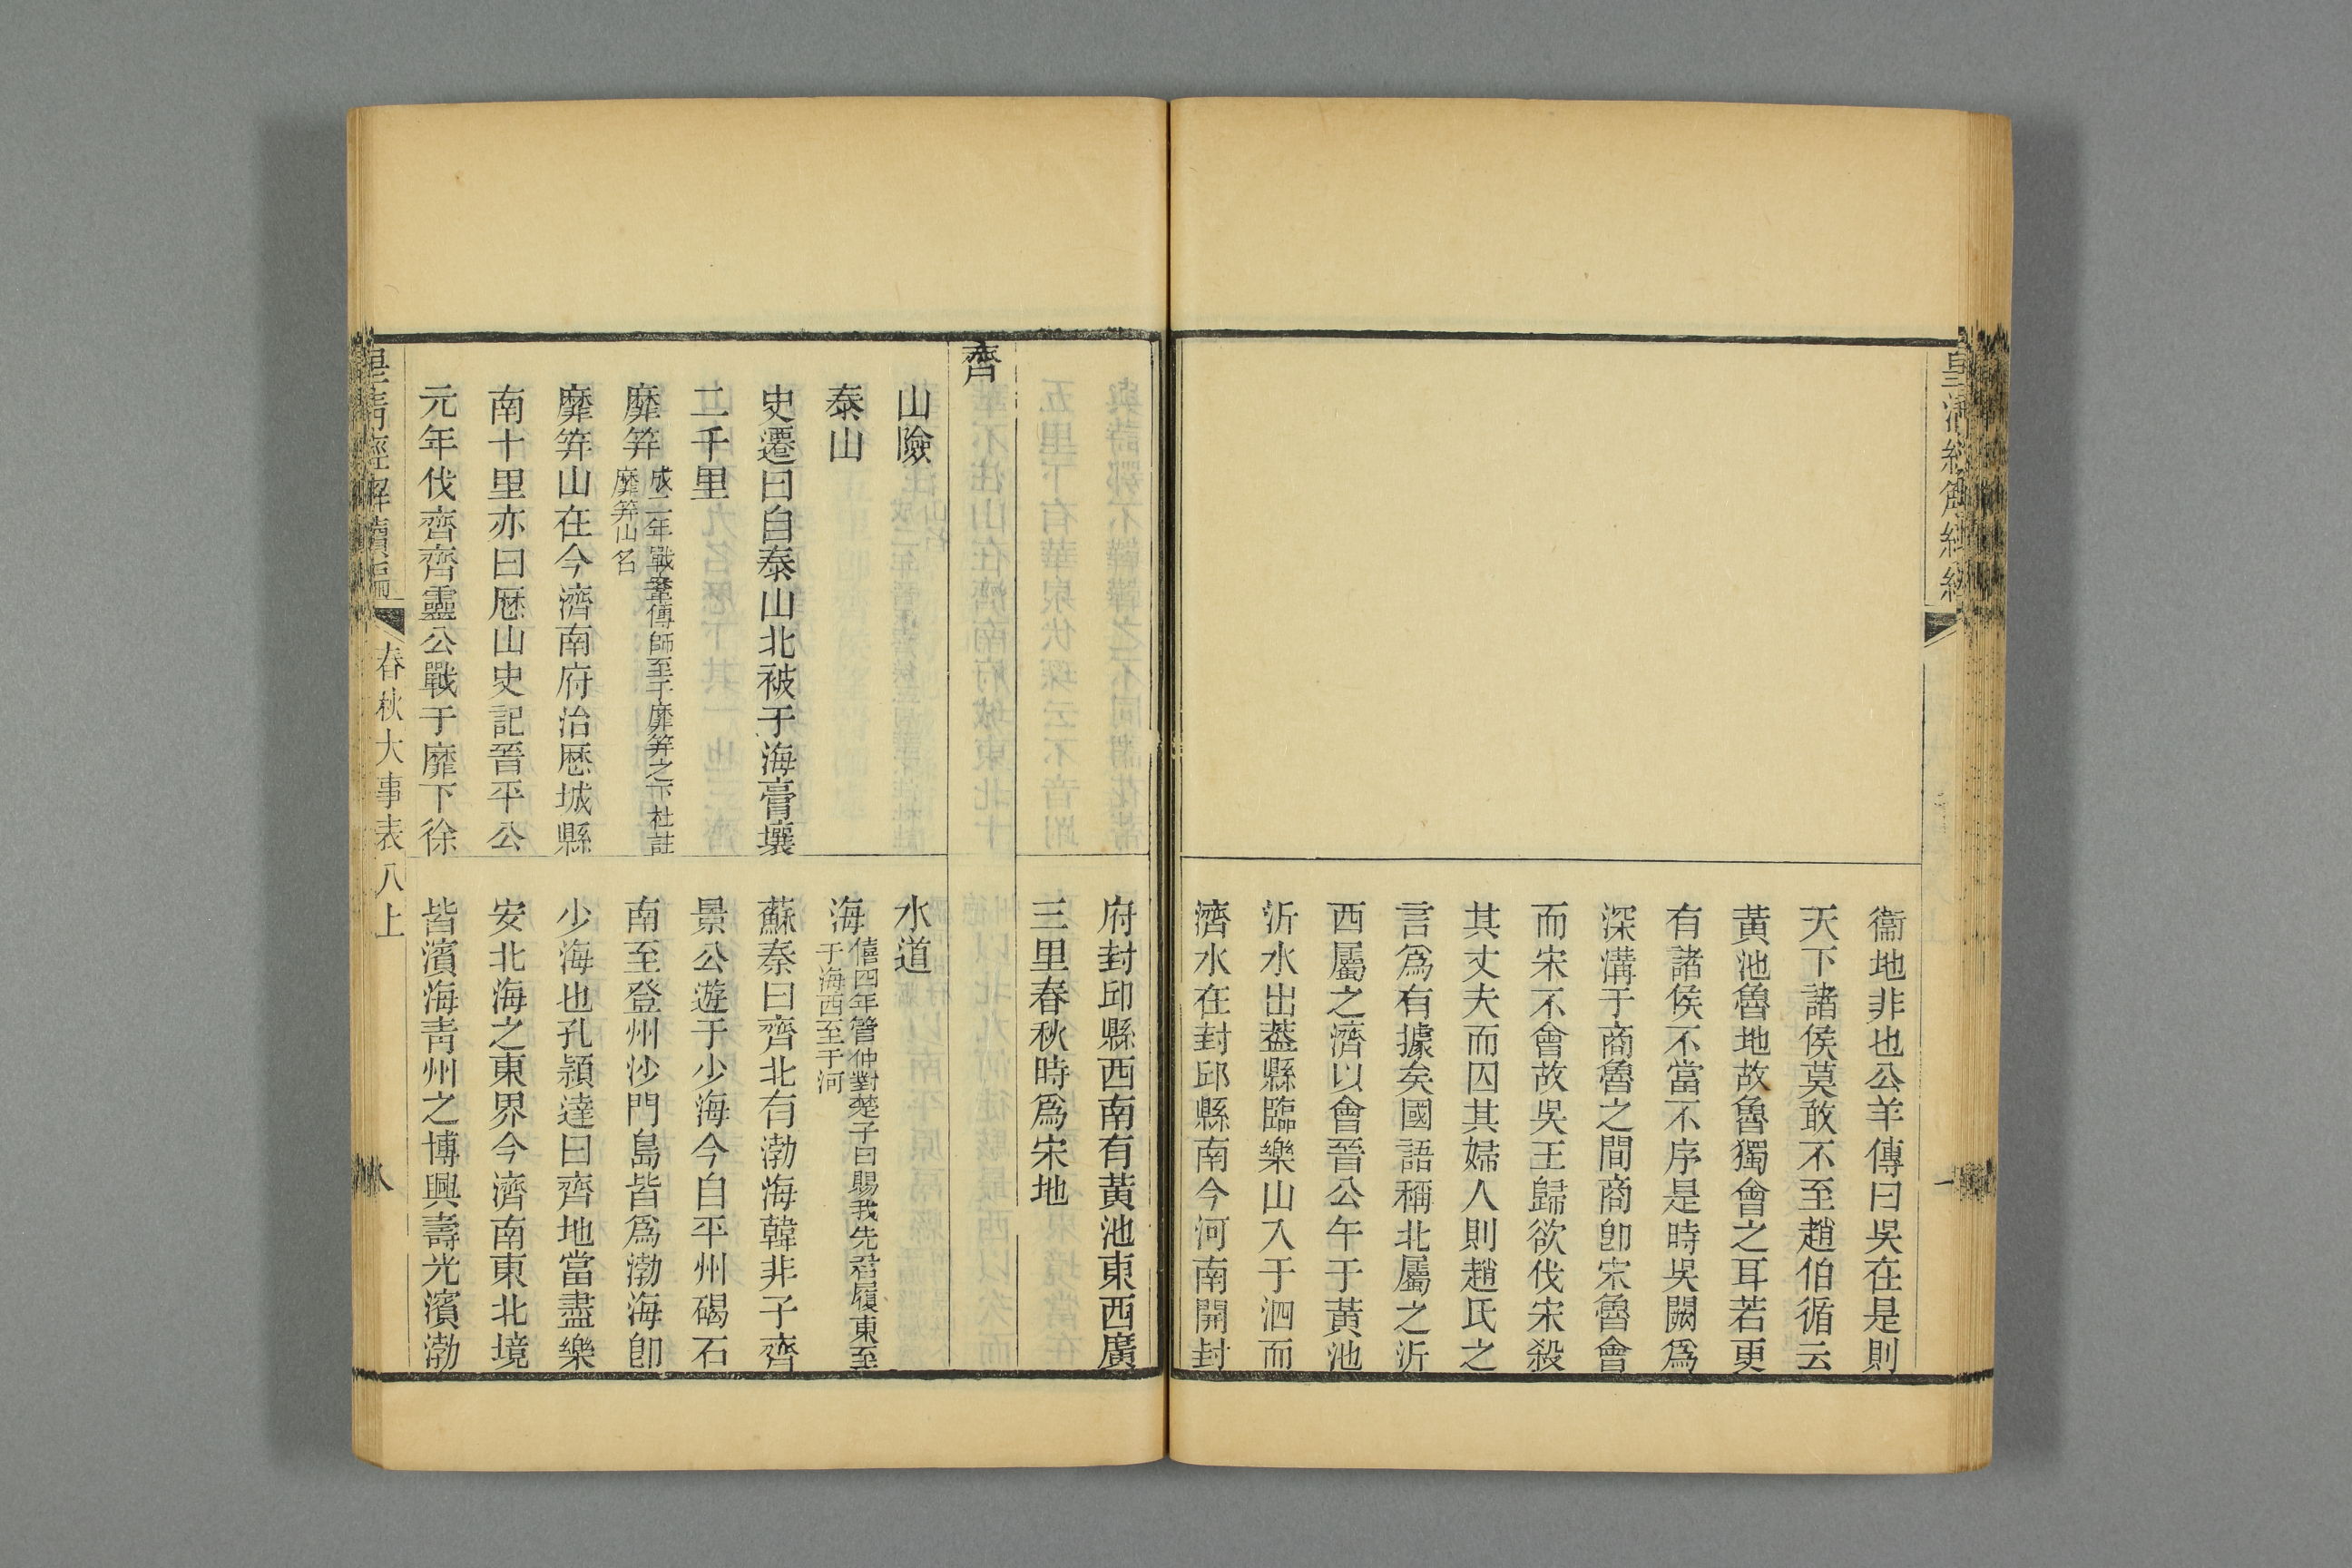 衞地非也公羊傳曰吳在是則
天下諸侯莫敢不至趙伯循云
黃池魯地故魯獨會之耳若更
有諸侯不當不序是時吳闕爲
深溝于商魯之間商卽宋魯會
而宋不會故吳王歸欲伐宋殺
其丈夫而囚其婦人則趙氏之
言爲有據矣國語稱北屬之沂
西屬之濟以會晉公午于黃池
沂水出葢縣臨樂山入于泗而
濟水在封邱縣南今河南開封
府封邱縣西南有黃池東西廣
三里春秋時爲宋地
齊
山險
泰山
史遷曰自泰山北被于海膏壤
二千里
靡筓
成二年戰鞌傳師至于靡筓之下杜註
靡筓山名
靡筓山在今濟南府治歷城縣
南十里亦曰歷山史記晉平公
元年伐齊齊靈公戰于靡下徐
水道
海
僖四年管仲對楚子曰賜我先君履東至
于海西至于河
蘇秦曰齊北有渤海韓非子齊
景公遊于少海今自平州碣石
南至登州沙門島皆爲渤海卽
少海也孔穎達曰齊地當盡樂
安北海之東界今濟南東北境
皆濱海青州之博興壽光濱渤
皇清經解續編
春秋大事表八上
八